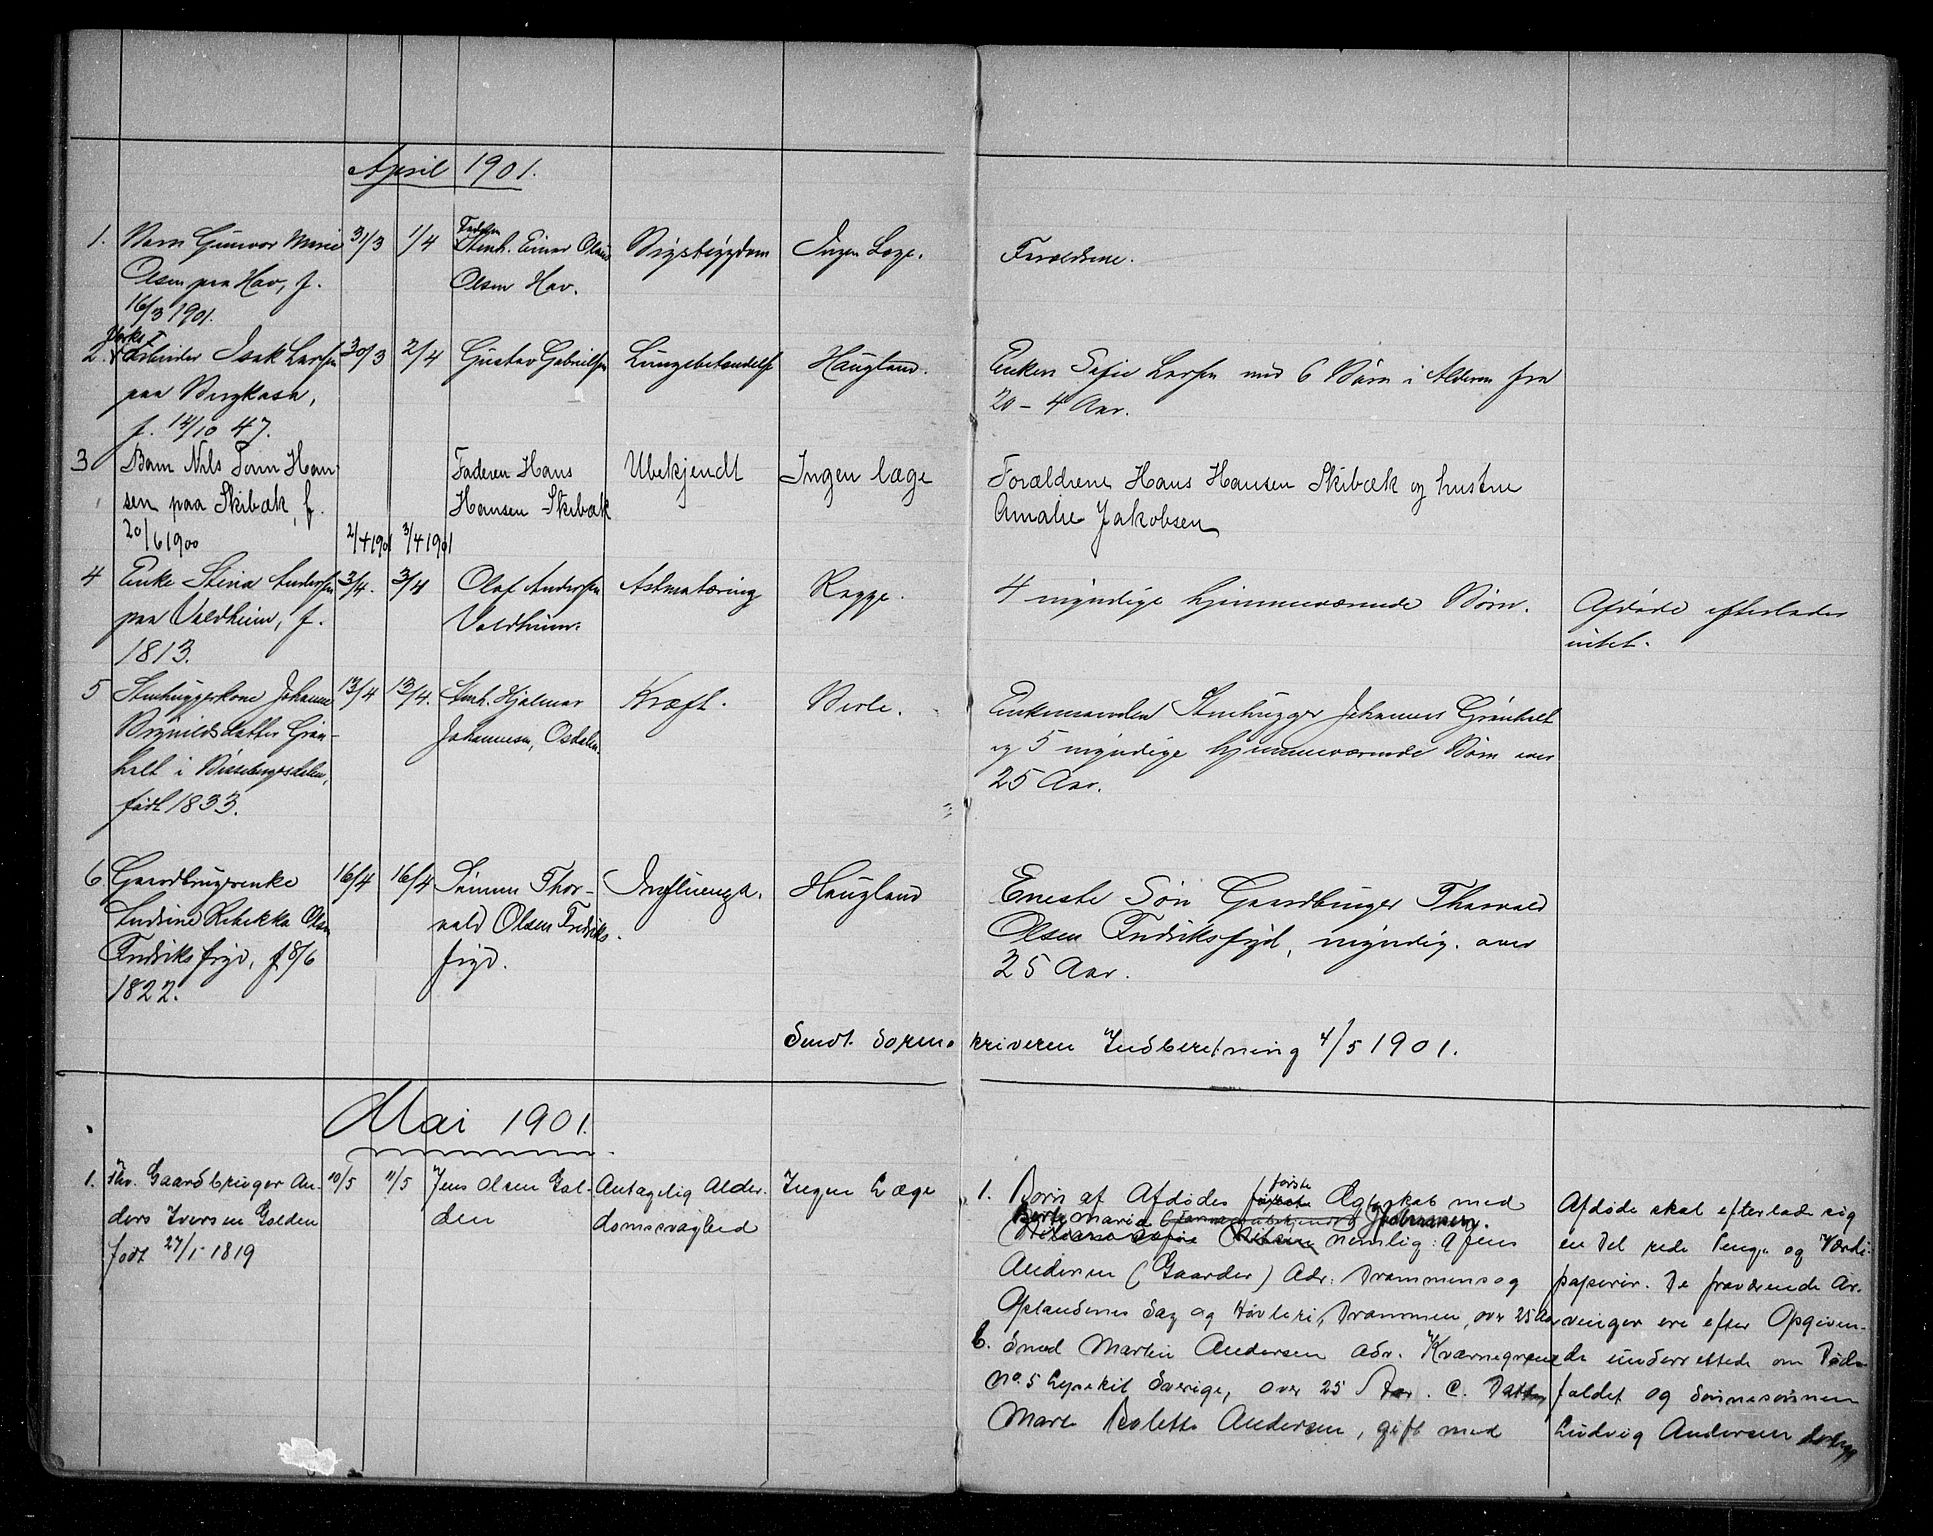 April 1901.
1. Barn Gunvor Marie 31/3 1/4 Faderen Stenh. Einar Olaus Brystsygdom Ingen Læge. Forældrene.
Olsen paa Hav, f. Olsen Hav.
16/3 1901.
2. Arbeider Isak Larssen 30/3 2/4 Gustav Gabrielsen Lungebetændelse Haugland. Enken Sofie Larsen med 6 Børn i Alderen fra
paa Bergkasa, 20 - 4 Aar.
f. 14/10 47.
3 Barn Nils Torm Han- Faderen Hans Ubekjendt Ingen læge Forældrene Hans Hansen Skibæk og hustru
sen paa Skibæk, f. Hansen Skibæk Amalie Jakobsen
20/6 1900 2/4 1901 3/4 1901
4 Enke Stina Andersen 3/4. 3/4 Olaf Andersen Astmatæring Ragge. 4 myndige hjemmeværende Børn. Afdøde efterlader
paa Valdheim, f. Valdheim. intet.
1813.
5 Stenhuggerkone Johanne 13/4 13/4. Stenh. Hjalmar Kræft. Berle. Enkemanden Stenhugger Johannes Grønhelt
Brynildsdatter Grøn- Johannesen, Osdalen og 5 myndige hjemmeværende Børn over
helt i Bissebergsdalen, 25 Aar.
født 1833.
6 Gaardbrugerenke 16/4 16/4 Sønnen Thor- Influenza. Haugland Eneste Søn Gaardbruger Thorvald
Andrine Rebekka Olsen vald Olsen Fredriks- Olsen Fredriksfryd, myndig. over
Fredriksfryd, f 8/6 fryd. 25 Aar.
1822.
Sendt Sorenskriveren Indberetning 4/5 1901.
Mai 1901.
1. Fhv. Gaardbruger An- 10/5 11/5 Jens Olsen Gal- Antagelig Alder- Ingen Læge 1. Børn af Afdødes første Ægteskab med Afdøde skal efterlade sig
ders Iversen Galden den domssvaghed Berte Maria Johannesen. nemlig: a Jens en Del rede Penge og Værdi-
født 27/1 1819 Andersen (Gaarder) Adr: Drammens og papirer. De fraværende Ar-
Oplandenes Sag og Høvleri, Drammen, over 25 Aar vinger ere efter Opgiven-
b. Smed Martin Andersen Adr. Kværnegrend de underrettede om Døds-
No 5 Lysekil Sverige, over 25 Aar. c. Datter faldet og Sønnesønnen
Mart Kolette Andersen, gift med Ludvig Andersen